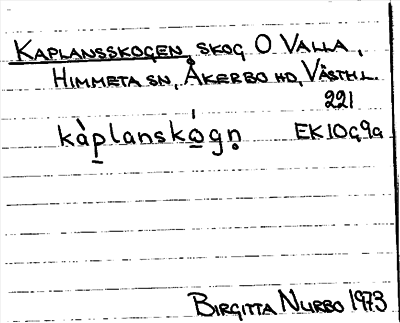 KAPLANSSKOGEN, SKOG O VALLA,
HIMMETA SN, ÅKERBO HD, VÄSTML.
221
kàplanskógn̥ EK10G9a
BIRGITTA NURBO 1973